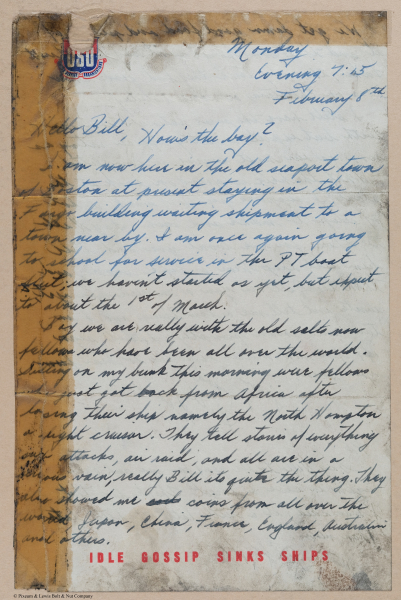 We got
USO
Monday
Evening 7:45
February 8th
Hello Bill, How's the boy?
I am now here in the old seaport town
of Boston at present staying in the
Fargo building waiting shipment to a
town near by. I am once again going
to school for service in the PT boat
fleet, we haven't started as yet, but expect
to about the 1st of March.
Say we are really with the old salts now
fellows who have been all over the world.
Sitting on my bunk this morning were fellows
just got back from Africa after
losing their ship namely the North Hampton
a light cruiser. They tell stories of everything
attacks, air raid, and all are in a
vain, really Bill its quite the thing. They
also showed me coins from all over the
world, Japan, China, France, England, Australia
and others.
IDLE GOSSIP SINKS SHIPS
© Pixsum & Lewis Bolt & Nut Company